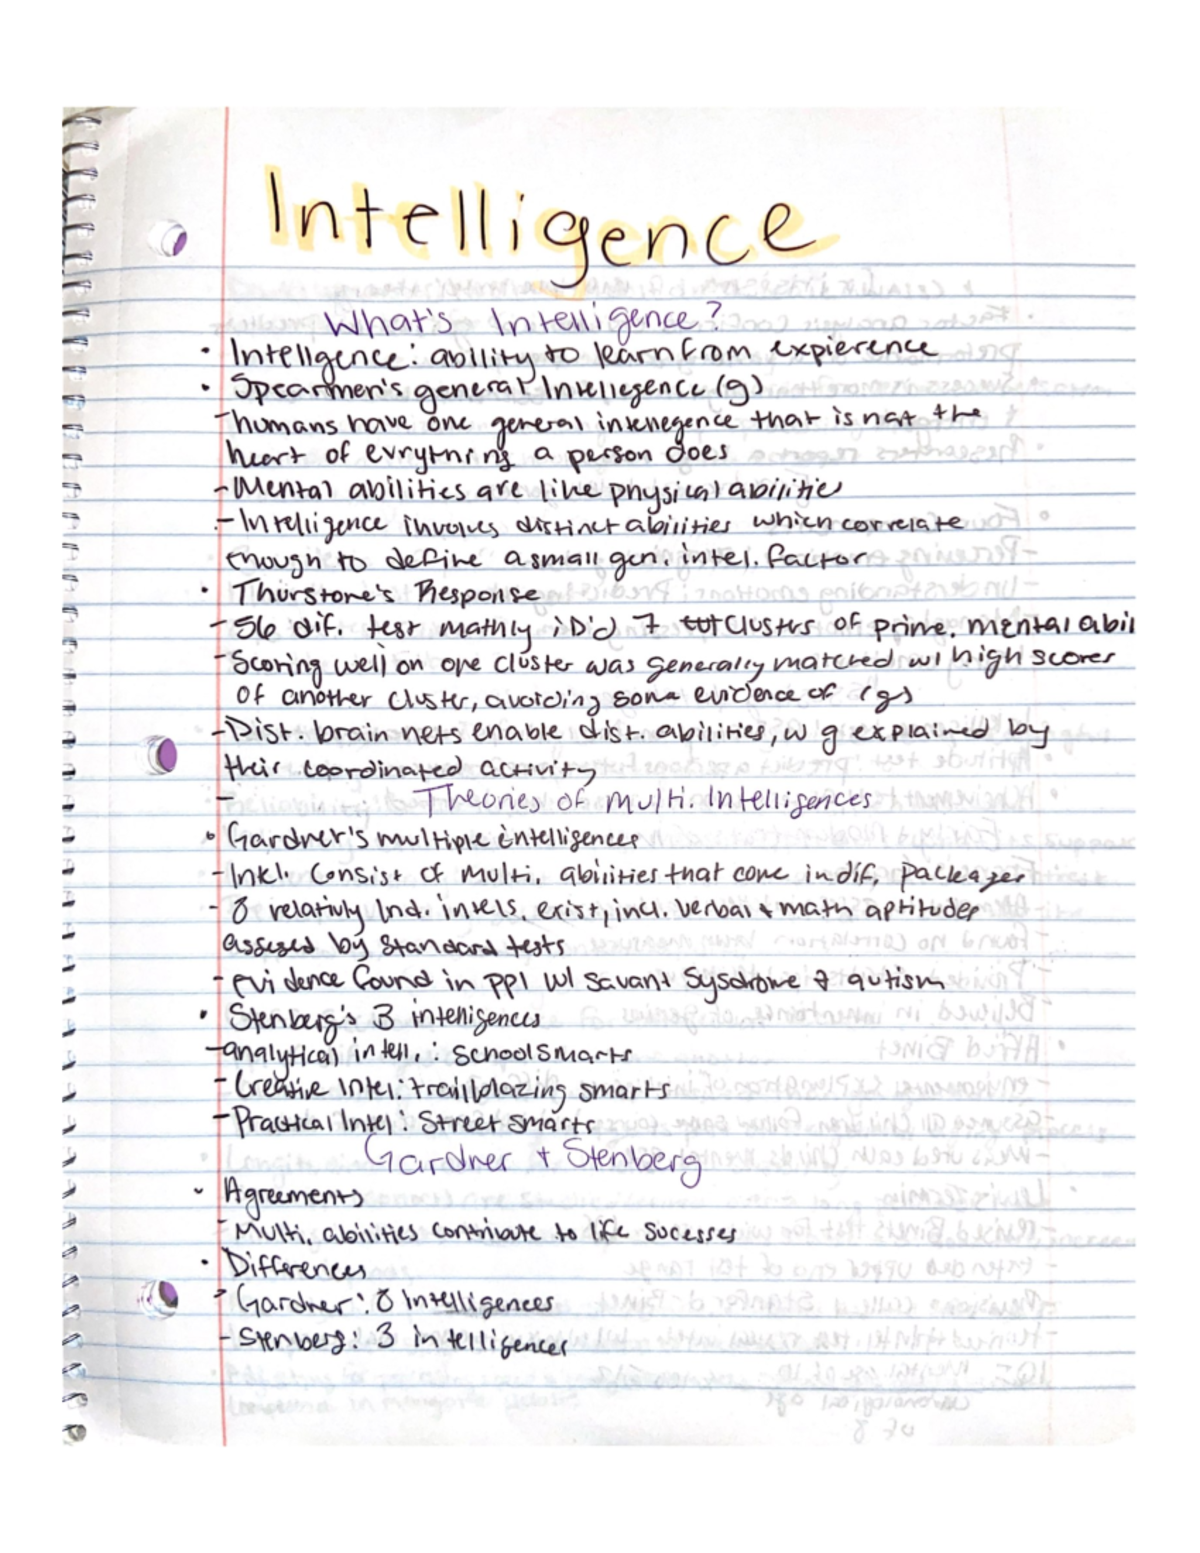 Intelligence
What's Intelligence?
• Intellgence: abillity to learn from expierence
• Spearmen's general Intellegence (g)
- humans have one general intellegence that is nat the
heart of evrything a person does
- Mental abilities are like physical abilitie
- Intelligence involves distinct abilities which correlate
enough to define a small gen. intel. factor
• Thurstone's Response
- 56 dif. test mathly iD'd 7 clusters of prime. mental abil
- Scoring well on one cluster was generally matched w/ high scores
of another cluster, avoiding some evidence of (g)
- Dist. brain nets enable dist. abilities, w g explained by
their coordinated activity
- Theories of multi. Intelligences
• Gardner's multiple intelligences
- Intel. Consist of multi. abilities that come in dif. packages
- 8 relativly Ind. intels. exist, incl. verbal + math aptitudes
assesed by standard tests
- evidence found in ppl w/ savant Sysdrome & autism
• Stenberg's 3 intelligences
- analytical intell.: school smarts
- Creative Intel: trailblazing smarts
- Practical Intel: Street smarts
Gardner + Stenberg
• Agreements
- Multi. abilities contribute to life sucesses
• Differences
- Gardner: 8 Intelligences
- Stenberg: 3 intelligences